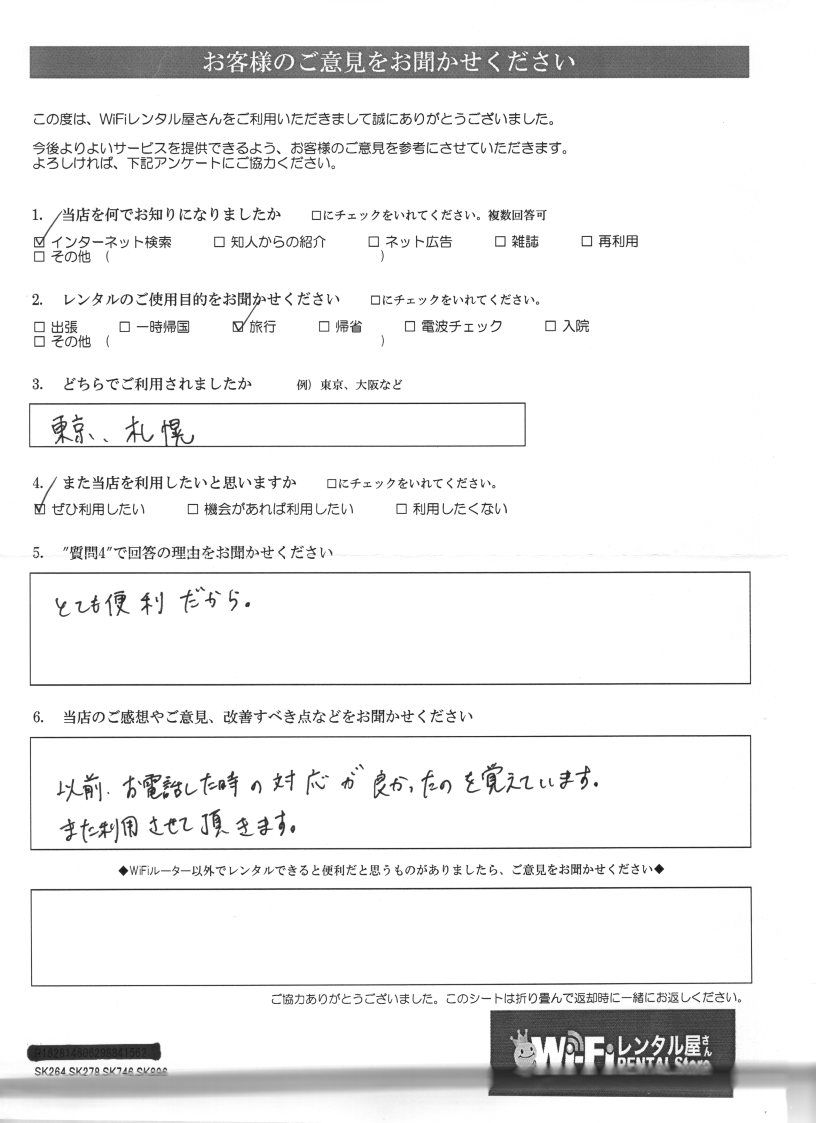 お客様のご意見をお聞かせください
この度は、WiFiレンタル屋さんをご利用いただきまして誠にありがとうございました。
今後よりよいサービスを提供できるよう、お客様のご意見を参考にさせていただきます。
よろしければ、下記アンケートにご協力ください。
1. 当店を何でお知りになりましたか □にチェックをいれてください。複数回答可
☑ インターネット検索 □ 知人からの紹介 □ ネット広告 □ 雑誌 □ 再利用
□ その他 ( )
2. レンタルのご使用目的をお聞かせください □にチェックをいれてください。
□ 出張 □ 一時帰国 ☑ 旅行 □ 帰省 □ 電波チェック □ 入院
□ その他 ( )
3. どちらでご利用されましたか 例）東京、大阪など
東京、札幌
4. また当店を利用したいと思いますか □にチェックをいれてください。
☑ ぜひ利用したい □ 機会があれば利用したい □ 利用したくない
5. "質問4"で回答の理由をお聞かせください
とても便利だから。
6. 当店のご感想やご意見、改善すべき点などをお聞かせください
以前、お電話した時の対応が良かったのを覚えています。
また利用させて頂きます。
◆WiFiルーター以外でレンタルできると便利だと思うものがありましたら、ご意見をお聞かせください◆
ご協力ありがとうございました。このシートは折り畳んで返却時に一緒にお返しください。
Wi-Fiレンタル屋さん
RENTAL Store
SK264,SK278,SK746,